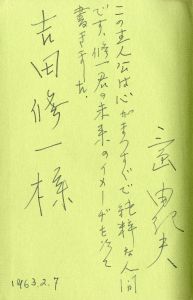 三島由紀夫
この主人公は心がまつすぐで純粋な人間
です。修一君の未来のイメーヂを込めて
書きました。
吉田修一様
1963.2.7